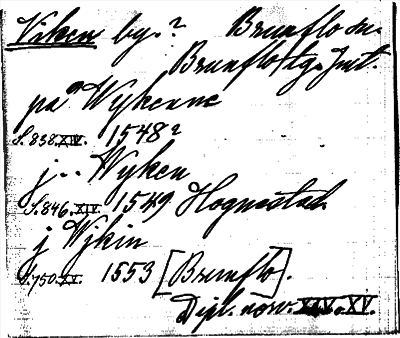 Viken by.? Brunflo sn.
Brunflo tg. Jmt.
på Wykenne
S. 838. XIV. 1548?
j.. Wyken
S. 846. XIV. 1549 Hognestad
j Wjkin
S. 750. XV. 1553 [Brunflo].
Dipl. norv. XIV. XV.